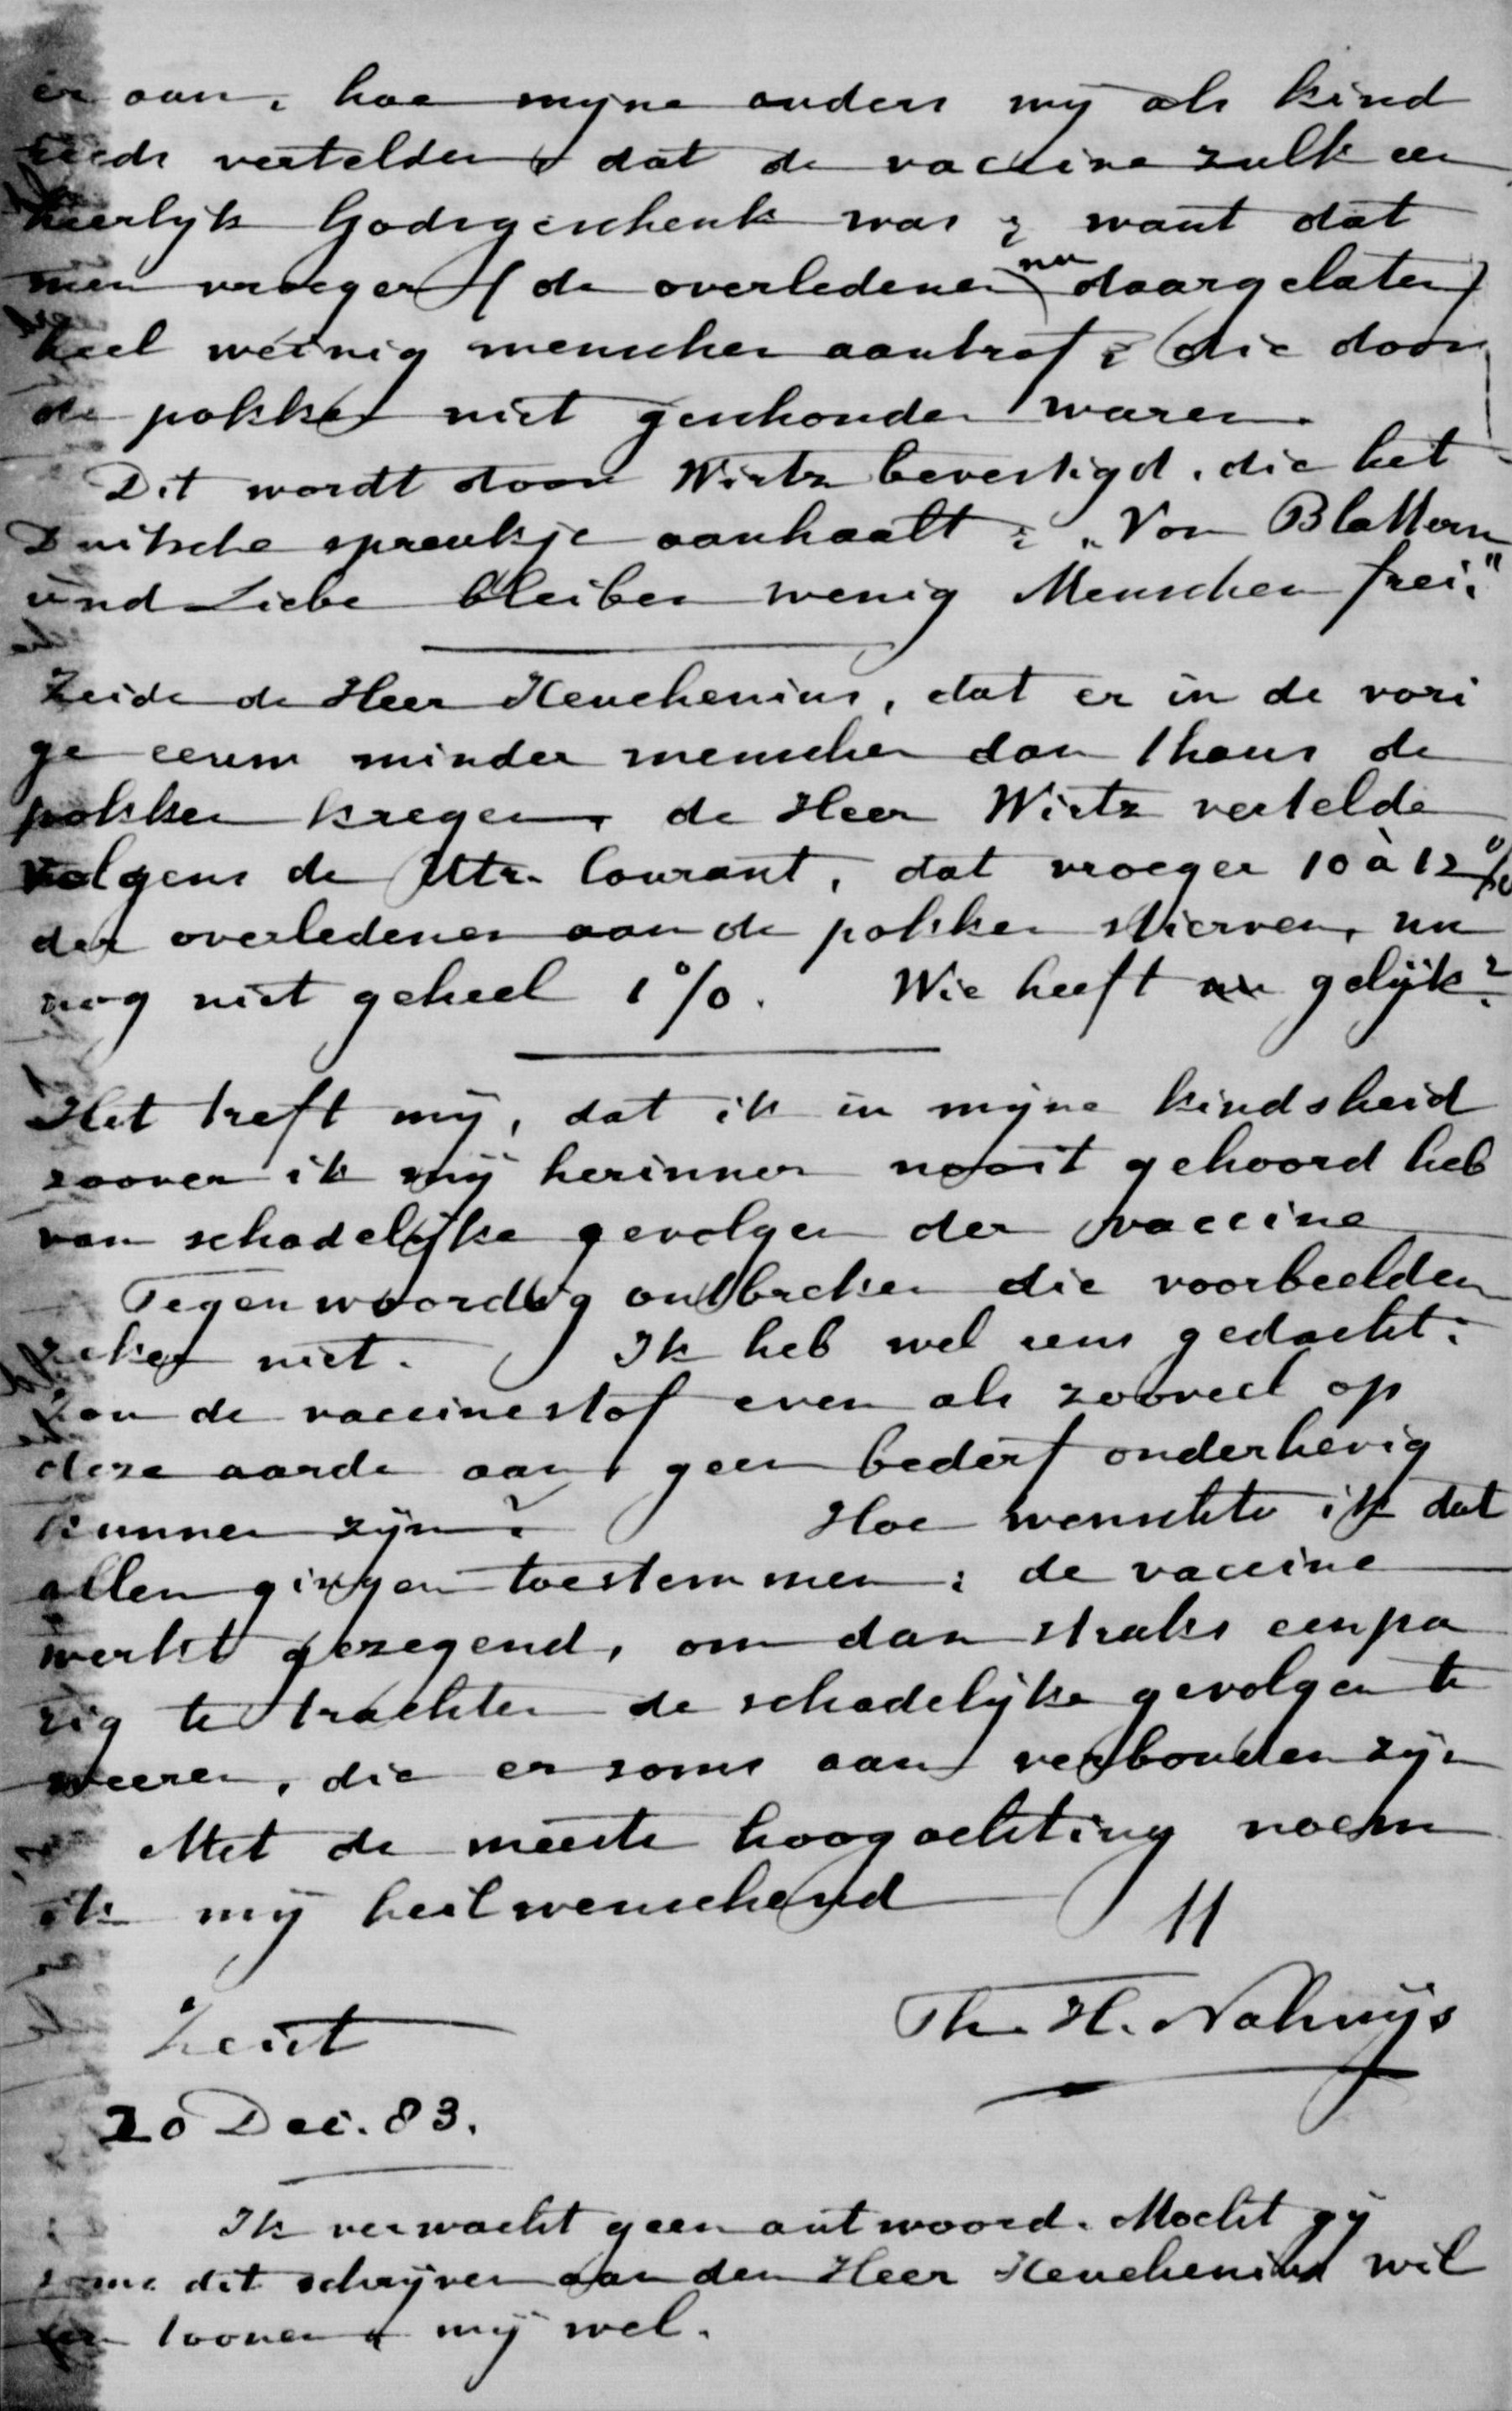 er aan, hoe mijne ouders mij als kind
reeds vertelden, dat de vaccine zulk een
heerlijk Godsgeschenk was; want dat
men vroeger (de overledenen nu daargelaten)
heel weinig menschen aantrof, die door
de pokken niet geschonden waren.
Dit wordt door Wirtz bevestigd, die het
Duitsche spreukje aanhaalt: „Von Blattern
und Liebe bleiben wenig Menschen frei."
Zeide de Heer Keuchenius, dat er in de vori
ge eeuw minder menschen dan thans de
pokken kregen, de Heer Wirtz vertelde
volgens de Utr. Courant, dat vroeger 10 à 12 %
der overledenen aan de pokken stierven, nu
nog niet geheel 1 %. Wie heeft nu gelijk?
Het treft mij, dat ik in mijne kindsheid
zoover ik mij herinner nooit gehoord heb
van schadelijke gevolgen der vaccine
Tegenwoordig ontbreken die voorbeelden
zeker niet. Ik heb wel eens gedacht:
Zou de vaccinestof even als zooveel op
deze aarde aan geen bederf onderhevig
kunnen zijn? Hoe wenschte ik dat
allen gingen toestemmen: de vaccine
werkt gezegend, om dan straks eenpa
rig te trachten de schadelijke gevolgen te
weeren, die er soms aan verbonden zijn
Met de meeste hoogachting noem
ik mij heilwenschend
Th. H. Nahuijs
Zeist
20 Dec. 83.
Ik verwacht geen antwoord. Mocht gij
soms dit schrijven aan den Heer Keuchenius wil
len toonen mij wel.